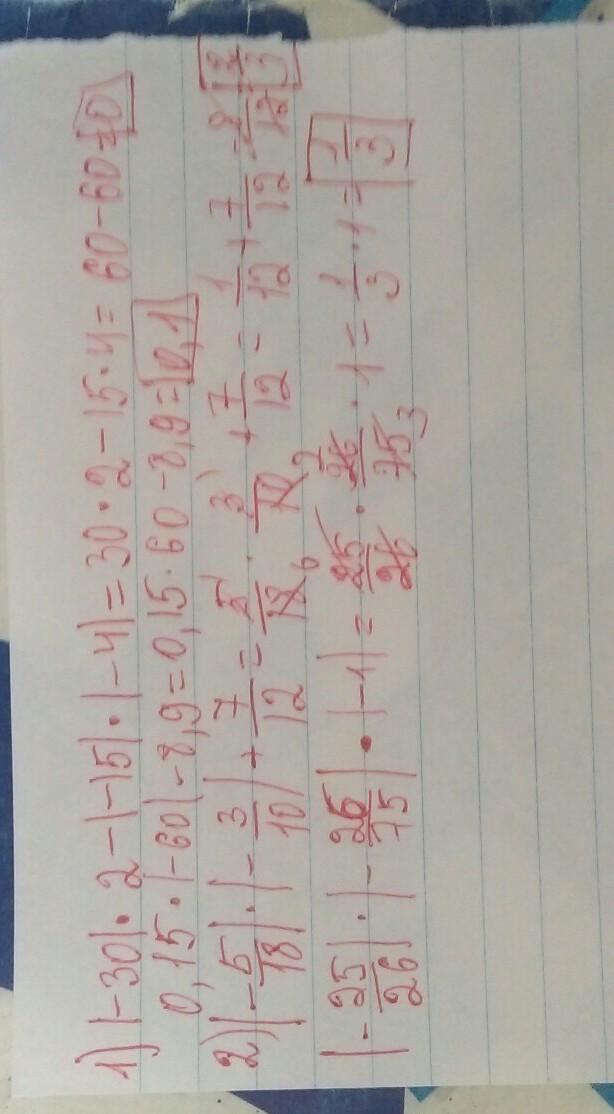 1) |-30|·2-|-15|·|-4|=30·2-15·4=60-60=0
0,15·|-60|-8,9=0,15·60-8,9=0,1
2) |-5/18|·|-3/10|+7/12=5/18·3/10+7/12=1/12+7/12=8/12=2/3
|-25/26|·|-26/75|·|-1|=25/26·26/75·1=1/3·1=1/3